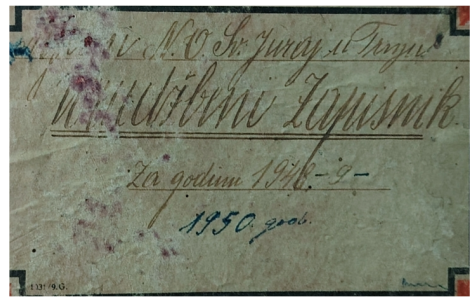 N. O Sv. Juraj u Trnju
Urudžbeni Zapisnik
Za godinu 1948-9-
1950. god.